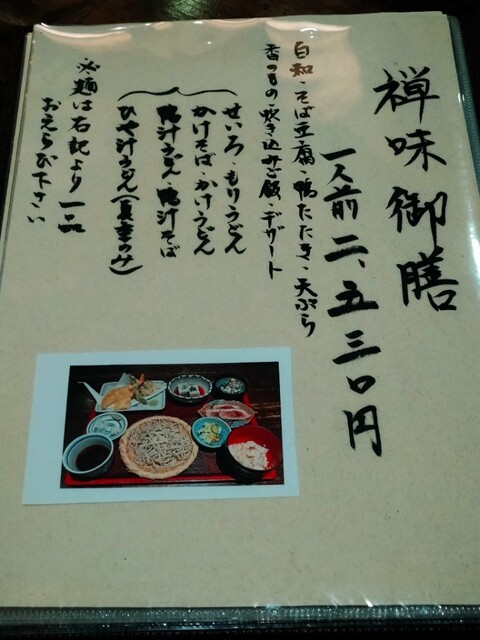 禅味御膳
一人前 二、五三〇円
白和・そば豆腐・鴨たたき・天ぷら
香のもの・炊き込みご飯・デザート
せいろ・もりうどん
かけそば・かけうどん
鴨汁うどん・鴨汁そば
ひや汁うどん(夏季のみ)
※麺は右記より一品
おえらび下さい